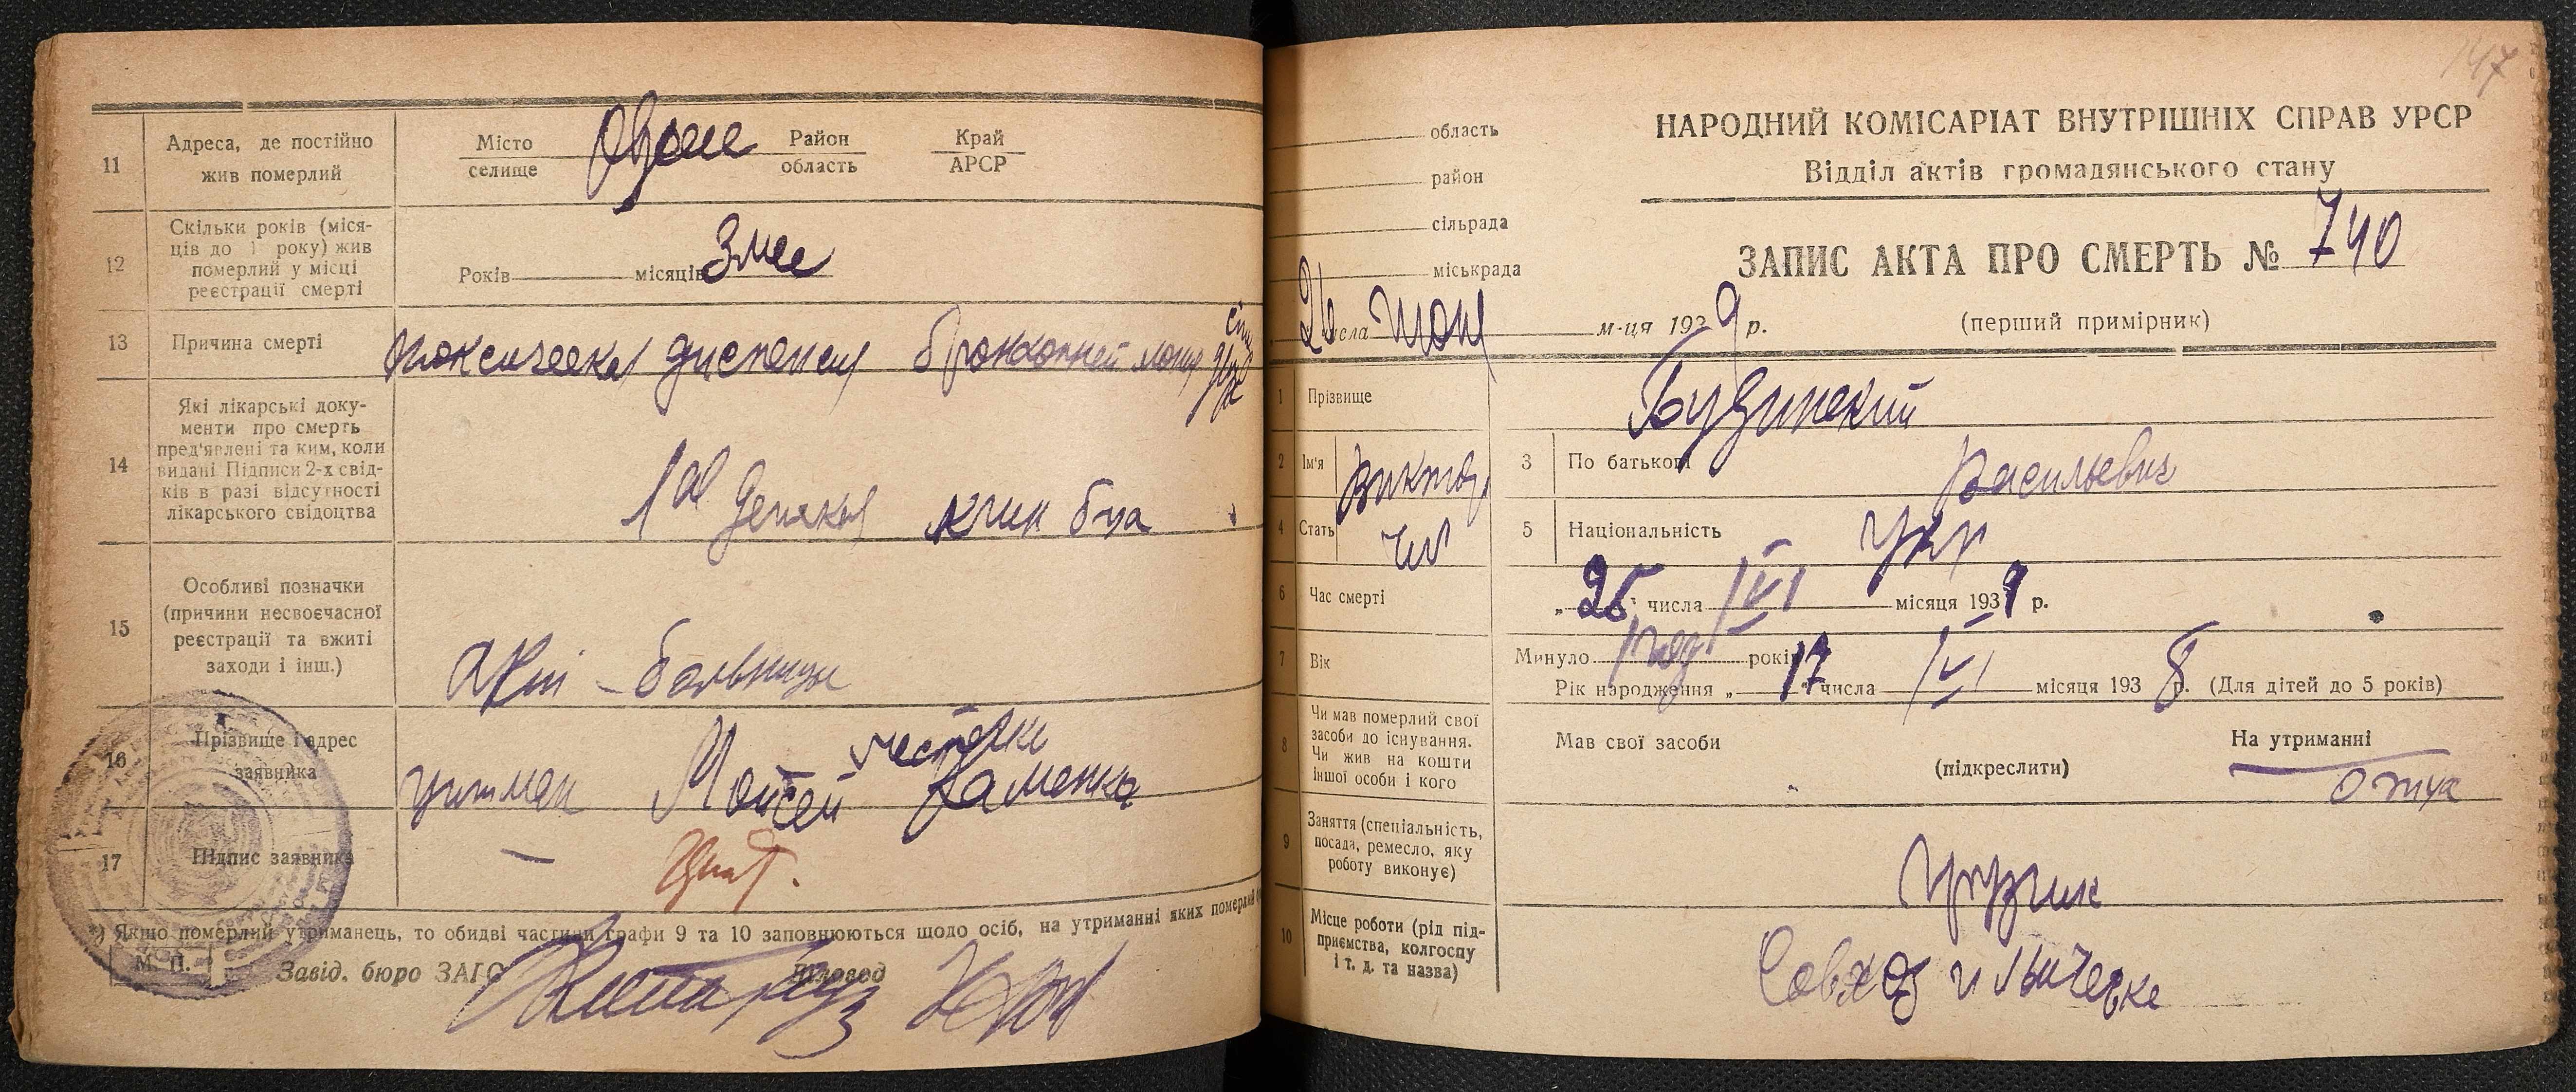 11
Адреса, де постійно
жив померлий
Місто
селище
Район
область
Край
АРСР
12
Скільки років (міся-
ців до 1 року) жив
померлий у місці
реєстрації смерті
Років місяців 3 мес
13
Причина смерти
токсическая диспепсия бронхопневмония
14
Які лікарські доку-
менти про смерть
пред'явлені та ким, коли
видані Підписи 2-х свід-
ків в разі відсутності
лікарського свідоцтва
1ая детская клин б-ца
15
Особливі позначки
(причини несвоєчасної
реєстрації та вжиті
заходи і інш.)
Акт - больницы
16
Прізвище і адрес
заявника
Мойсей
17
Підпис заявника
—
) Якщо померлий утриманець, то обидві частини графи 9 та 10 заповнюються щодо осіб, на утриманні яких померлий
М. П.
Завід. бюро ЗАГС
Діловод
147
область
район
сільрада
міськрада
26 числа июня м-ця 1939 р.
НАРОДНИЙ КОМІСАРІАТ ВНУТРІШНІХ СПРАВ УРСР
Відділ актів громадянського стану
ЗАПИС АКТА ПРО СМЕРТЬ № 740
(перший примірник)
1
Прізвище
Будинский
2
Ім'я
Виктор
3
По батькові
Васильевич
4
Стать
5
Національність
Укр
6
Час смерті
„25" числа VI місяця 1939 р.
7
Вік
Минуло 1 год років
Рік народження „17" числа VI місяця 1938 р. (Для дітей до 5 років)
8
Чи мав померлий свої
засоби до існування.
Чи жив на кошти
іншої особи і кого
Мав свої засоби
(підкреслити)
На утриманні
отца
9
Заняття (спеціальність,
посада, ремесло, яку
роботу виконує)
грузчик
10
Місце роботи (рід під-
приємства, колгоспу
і т. д. та назва)
Совхоз Ильичевке